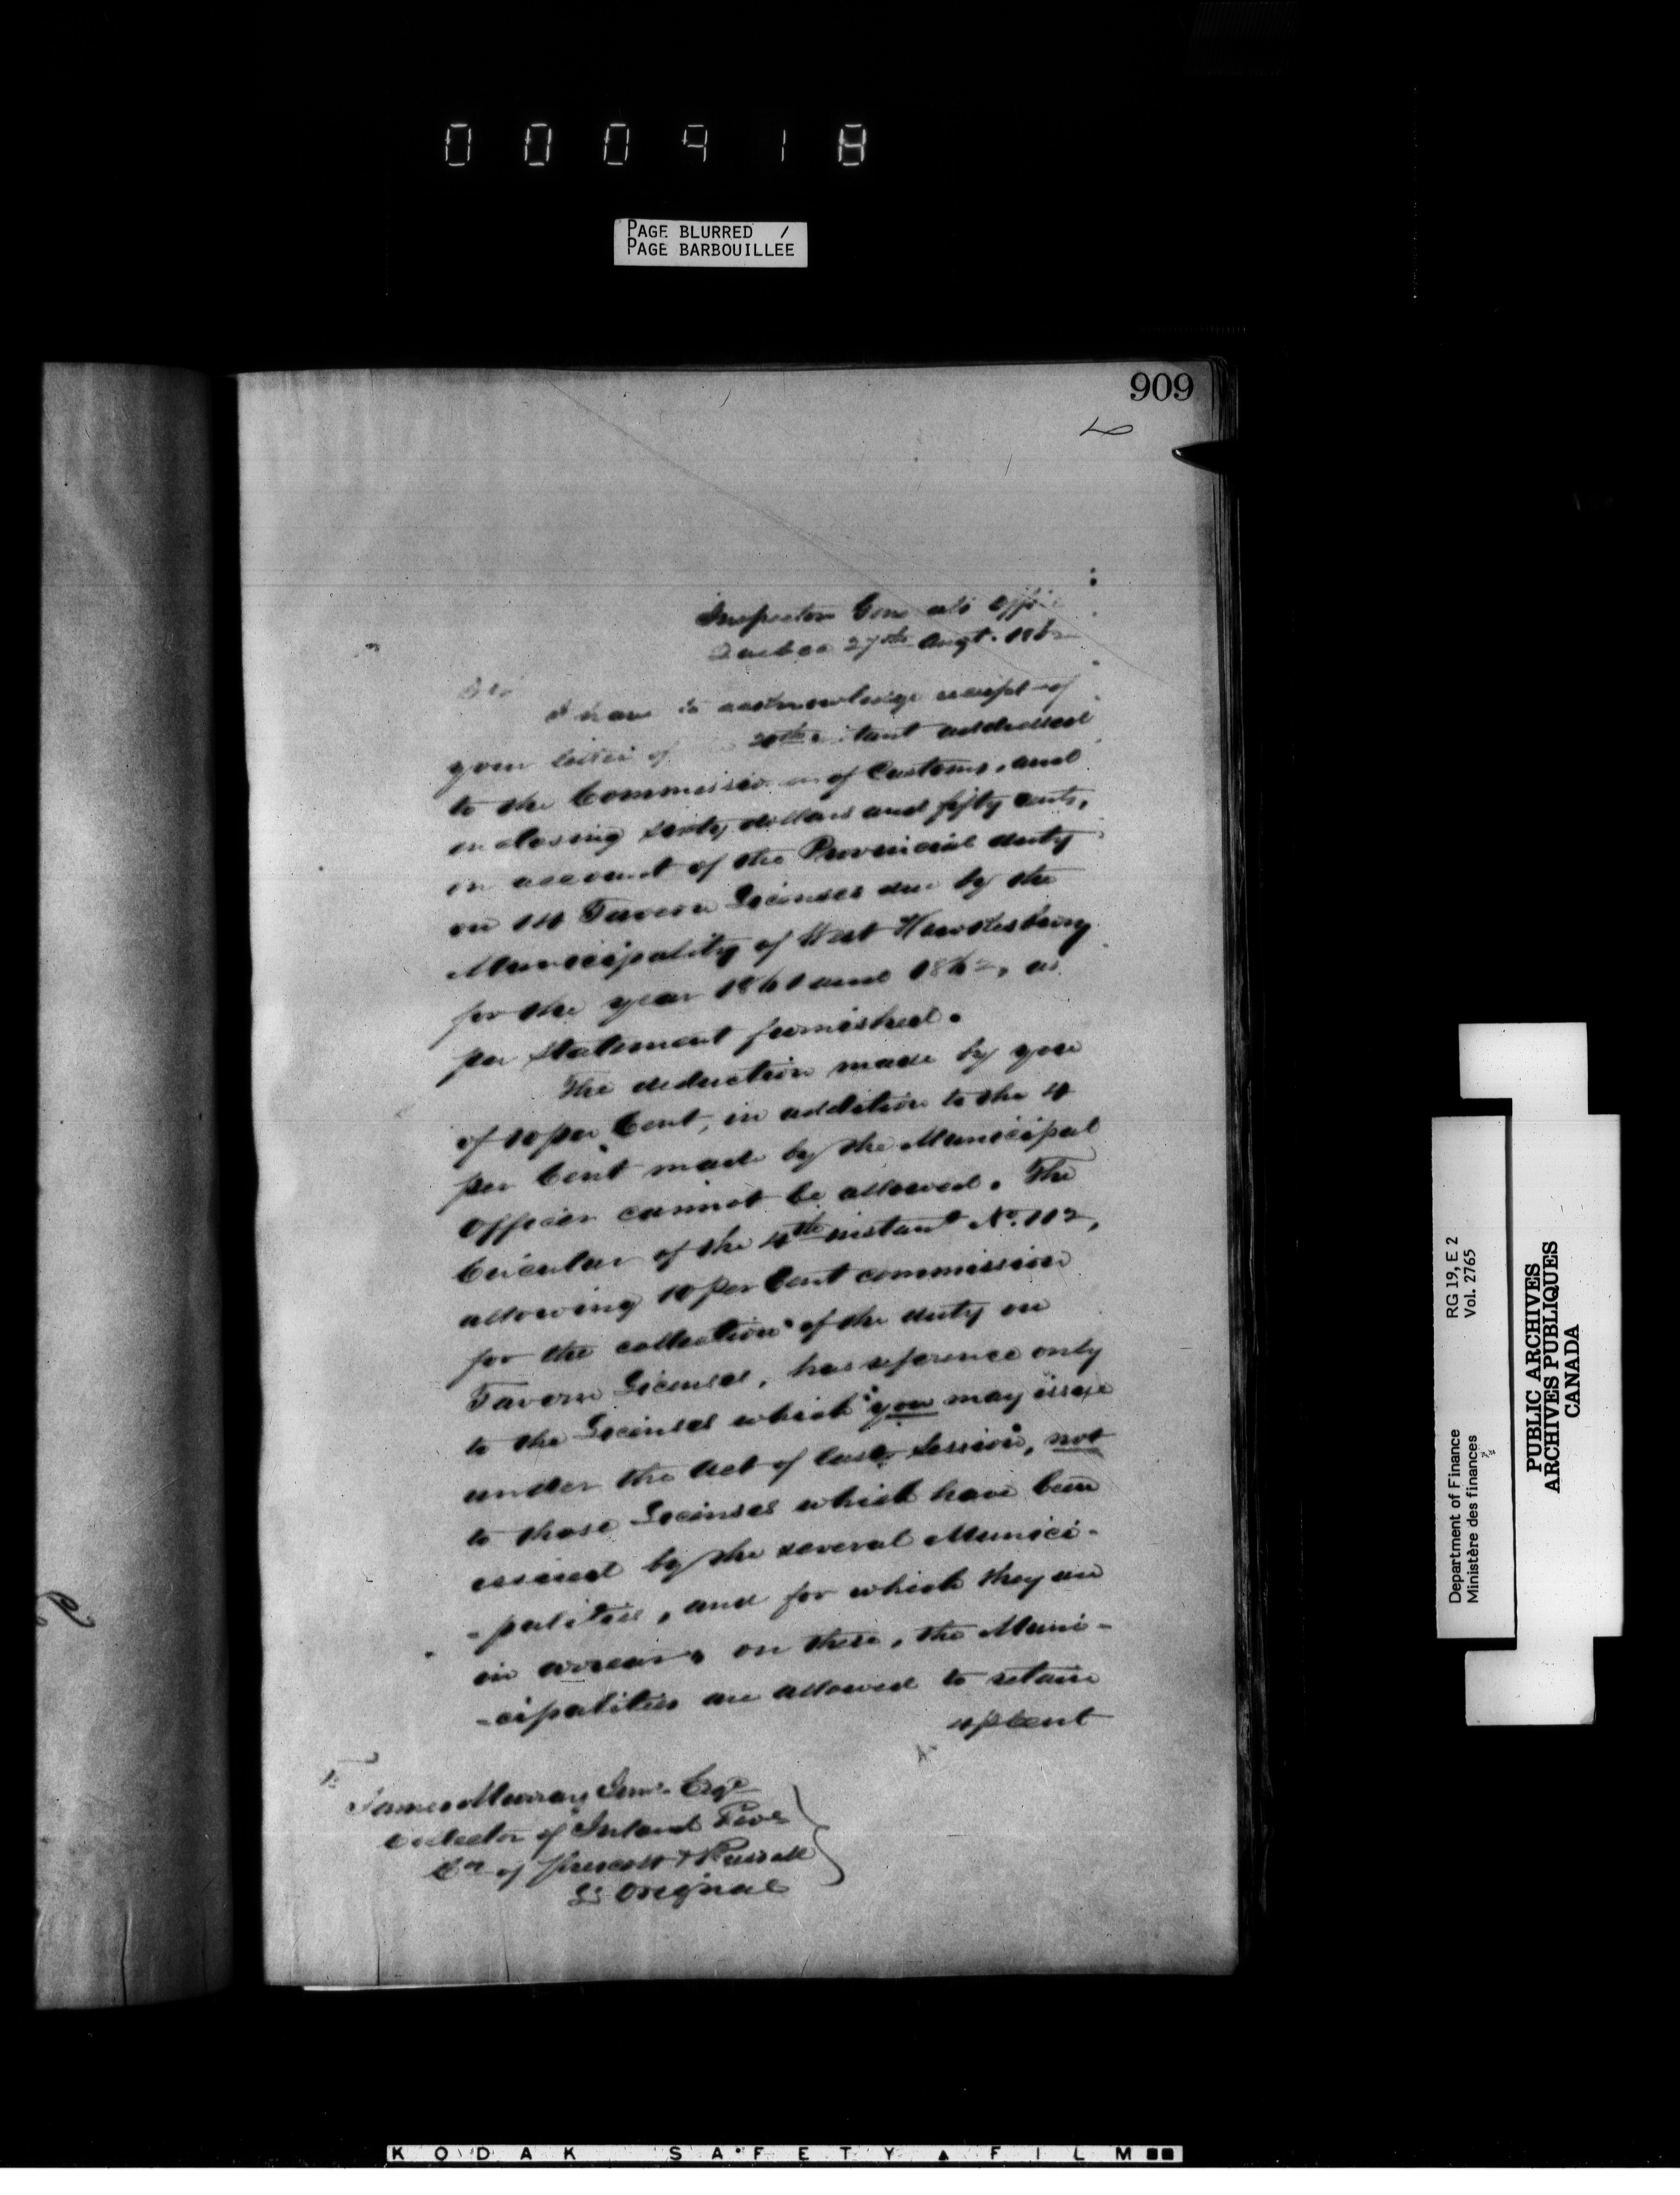 000918
PAGE BLURRED /
PAGE BARBOUILLEE
909
Inspector Generals Office
Quebec 27th Augt. 1862
Sir
I have to acknowledge receipt of
your letter of 20th instant addressed
to the Commissioner of Customs, and
enclosing sixty dollars and fifty cents,
on account of the Provincial duty
on 14 Tavern Licenses due by the
Municipality of West Hawkesbury
for the year 1861 and 1862, as
per statement furnished.
The deduction made by you
of 10 per Cent, in addition to the 4
per Cent made by the Municipal
Officer cannot be allowed. The
Circular of the 4th instant No. 112,
allowing 10 per Cent commission
for the collection of the duty on
Tavern Licenses, has reference only
to the Licenses which you may issue
under the Act of last Session, not
to those Licenses which have been
issued by the several Munici-
-palities, and for which they are
in arrear, on these, the Muni-
-cipalities are allowed to retain
4 p Cent
James Murray Junr. Esqe
Collector of Inland Reve
Co. of Prescott & Russell
L'Orignal
Department of Finance RG 19, E 2
Ministère des finances Vol. 2765
PUBLIC ARCHIVES
ARCHIVES PUBLIQUES
CANADA
KODAK SAFETY FILM